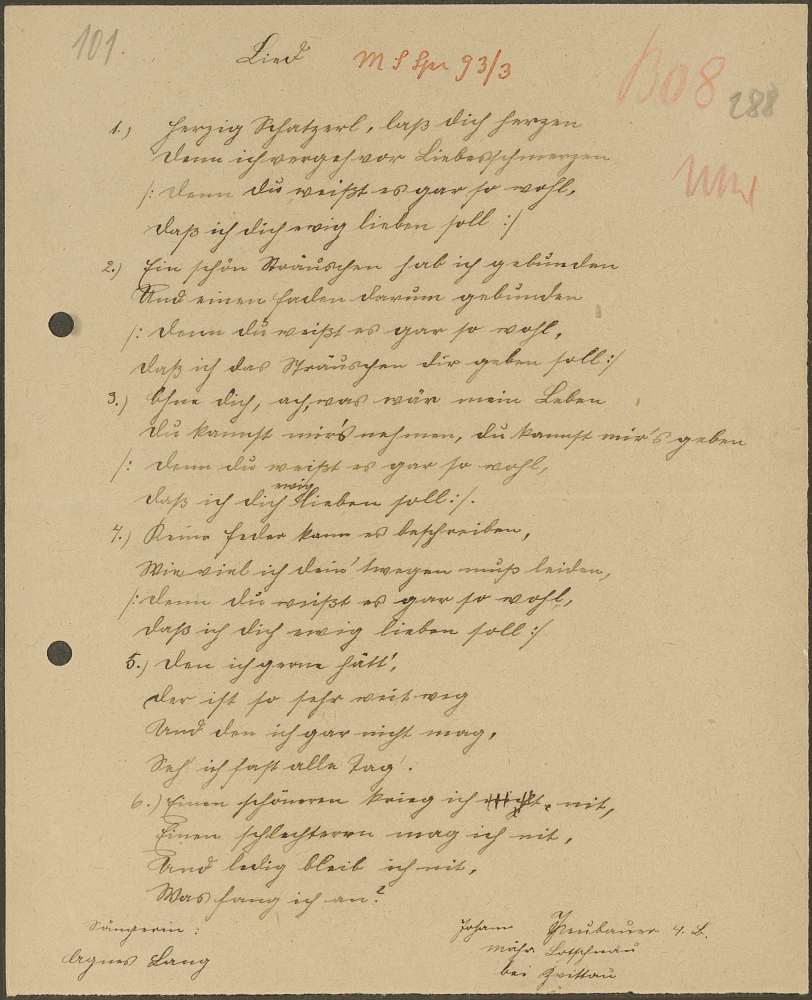 101.
Lied
M.S Spr 93/3
B08
288
1.) Herzig Schatzerl, laß dich herzen
Denn ich vergeh vor Liebesschmerzen
/: Denn du weißt es gar so wohl,
Daß ich dich ewig lieben soll :/
2.) Ein schön Sträuschen hab ich gebunden
Und einen Faden darum gebunden
/: Denn du weißt es gar so wohl,
Daß ich das Sträuschen dir geben soll :/
3.) Ohne dich, ach, was wär mein Leben
Du kannst mir's nehmen, du kannst mir's geben
/: Denn du weißt es gar so wohl,
ewig
Daß ich dich lieben soll :/.
4.) Keine Feder kann es beschreiben,
Wie viel ich dein'twegen muß leiden,
/: Denn du weißt es gar so wohl,
Daß ich dich ewig lieben soll :/
5.) Den ich gerne hätt',
Der ist so sehr weit weg
Und den ich gar nicht mag,
Seh' ich fast alle Tag'.
6.) Einen schöneren krieg ich nit,
Einen schlechteren mag ich nit,
Und ledig bleib ich nit,
Was fang ich an?
Sängerin:
Agnes Lang
Johann Neubauer 4. B.
Mähr. Lotschnau
bei Zwittau